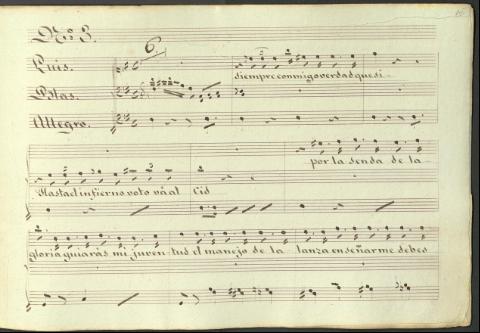 Nº 3.
6.
Luis.
siempre conmigo verdad que si
Blas.
Allegro.
por la senda de la
Hasta el infierno voto vá al Cid
gloria guiaras mi juventud el manejo de la lanza enseñarme debes